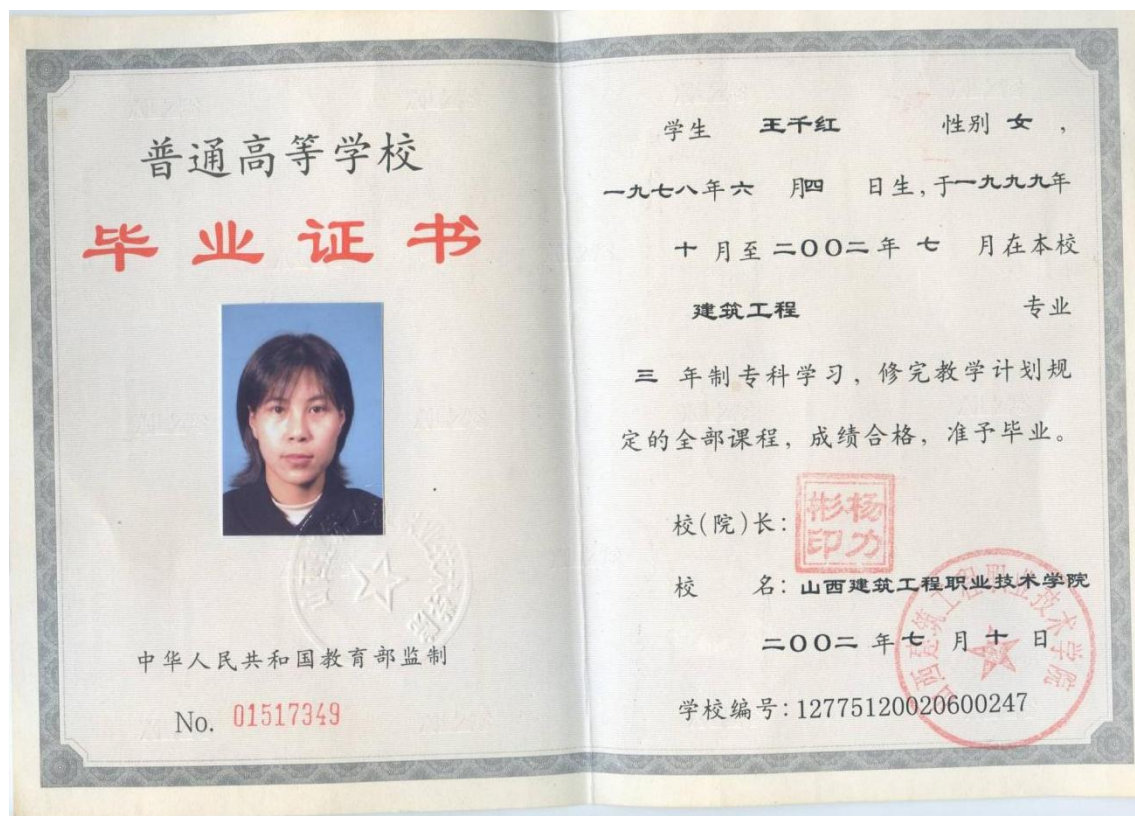 普通高等学校
毕业证书
中华人民共和国教育部监制
No. 01517349
学生 王千红 性别 女 ，
一九七八年六 月四 日生，于一九九九年
十 月至 二〇〇二 年 七 月在本校
建筑工程 专业
三 年制专科学习，修完教学计划规
定的全部课程，成绩合格，准予毕业。
校(院)长：
杨力彬印
校 名：山西建筑工程职业技术学院
二〇〇二 年 七 月 十 日
山西建筑工程职业技术学院
学校编号：12775120020600247